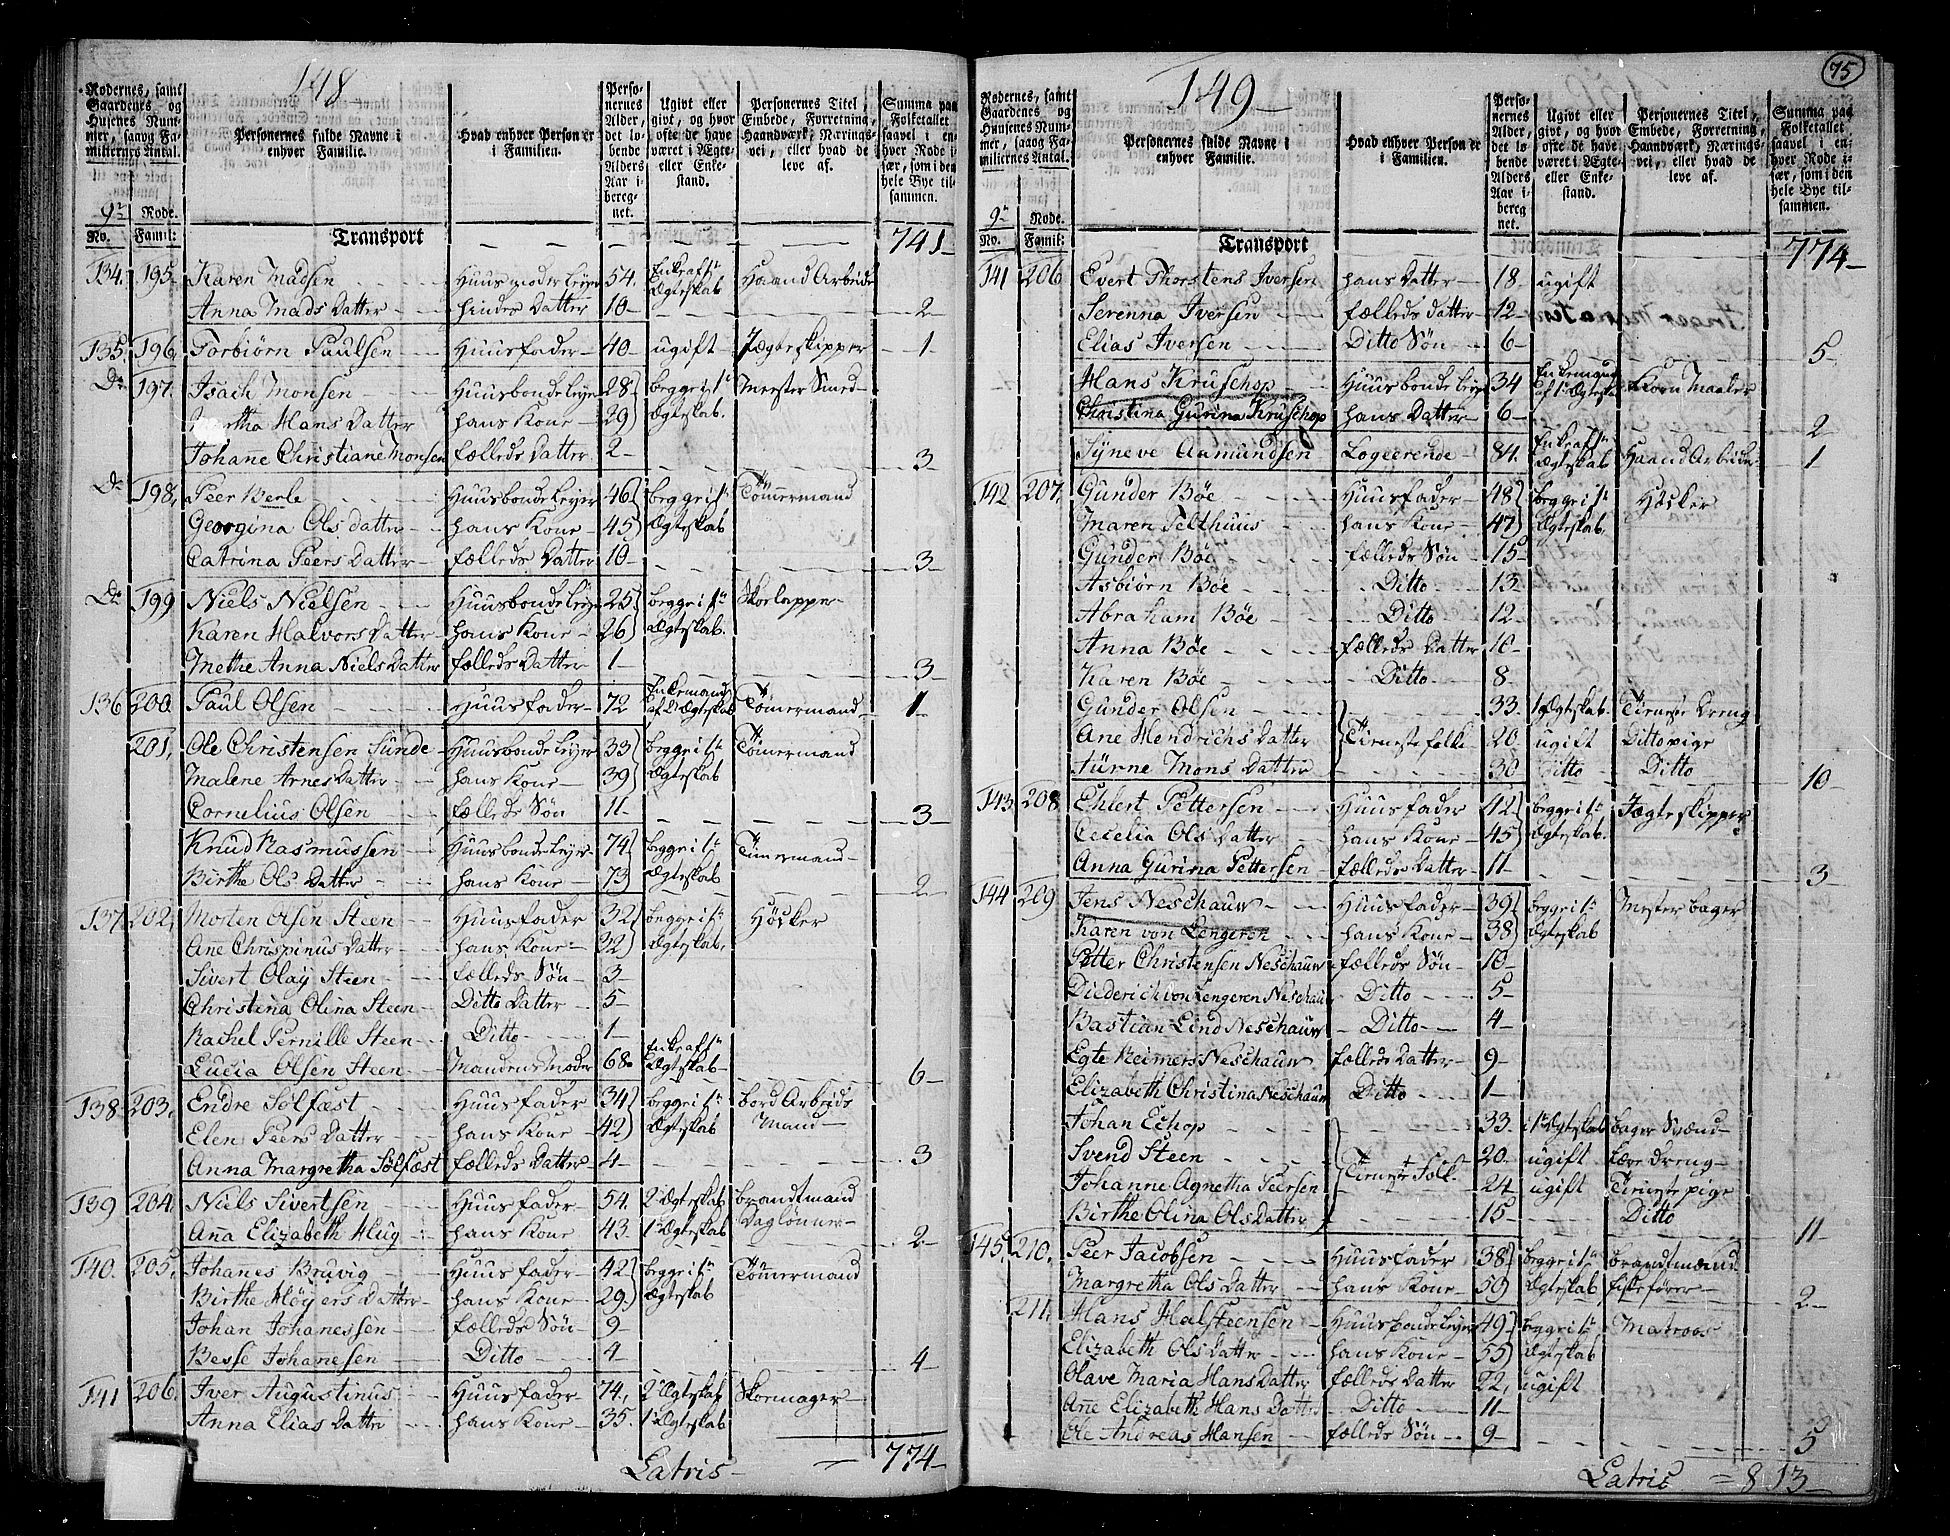 148
Rodernes, samt Gaardenes og Husenes Nummer, saavog Familiernes Antal. | Personernes fulde Navne i enhver Familie. | Hvad enhver Person er i Familien. | Personernes Alder, det løbende Alders Aar iberegnet. | Ugivt eller givt, og hvor ofte de have været i Ægte- eller Enkestand. | Personernes Titel, Embede, Forretning, Haandværk, Næringsvei, eller hvad de leve af. | Summa paa Folketallet saavel i enhver Rode især, som i den hele Bye tilsammen.
9de Rode.
No. Famil:
Transport 741
134. 195. Karen Madsen Huusmoder Leyer 54. Enke af 1te Ægteskab Haand Arbeide
Anna Mads Datter hindes Datter 10 2
135. 196. Torbiørn Paulsen Huusfader 40 ugift Jægteskipper 1
Do 197. Isach Monsen Huusbonde Leyer 28 begge i 1te Mester Smed
Hans Datter hans Kone 29 Ægteskab.
Johane Christiane Monsen fælleds Datter 2 3
Do 198. Peer Berle Huusbonde Leyer 46 begge i 1te Tömmermand
Georgina Ols datter hans Kone 45 Ægteskab
Catrina Peers Datter fælleds Datter 10 3
Do 199 Niels Nielsen Huusbonde Leyer 25 begge i 1te Skoelapper
Karen Halvors Datter hans Kone 26 Ægteskab.
Methe Anna Niels Datter fælleds Datter 1 3
136 200. Paul Olsen Huusfader 72 Enkemand af 2 Ægteskab Tömermand 1
201. Ole Christensen Sunde Huusbonde Leyer 33 begge i 1te Tömermand
Malene Arnes Datter hans Kone 39 Ægteskab
Cornelius Olsen fælleds Søn 11 3
Knud Rasmussen Huusbonde Leyer 74 begge i 1te Tömermand
Birthe Ols Datter hans Kone 73 Ægteskab 2
137 202. Morten Olsen Steen Huusfader 32 begge i 1te Höcker
Ane Chrispinus Datter hans Kone 32 Ægteskab.
Sivert Olay Steen fælleds Søn 3
Christina Olina Steen Ditto Datter 5
Rachel Pernille Steen Ditto 1
Lucia Olsen Steen Mandens Moder 68 Enke af 1te Ægteskab 6
138 203. Endre Sølfæst Huusfader 34 begge i 1te bord Arbeids
Elen Peers Datter hans Kone 42 Ægteskab Mand
Anna Margretha Sølfæst fælleds Datter 4 3
139 204. Niels Sivertsen Huusfader 54. 2 Ægteskab brandtmand
Aña Elizabeth Hug hans Kone 43. 1te Ægteskab Daglønner 2
140. 205. Johanes Bruvig Huusfader 42 begge i 1te Tömmermand
Birthe Høyers Datter hans Kone 29 Ægteskab
Johan Johanessen fælleds Søn 9
Besse Johanesen Ditto 4 4
141 206. Iver Augustinus Huusfader 74. 2 Ægteskab Skoemager
Anna Elias Datter hans Kone 35. 1te Ægteskab
Latris 774
149 75
Rodernes, samt Gaardenes og Huusenes Nummer, saavog Familiernes Antal. | Personernes fulde Navne i enhver Familie. | Hvad enhver Person er i Familien. | Personernes Alder, det løbende Alders Aar iberegnet. | Ugivt eller givt, og hvor ofte de have været i Ægte- eller Enkestand. | Personernes Titel, Embede, Forretning, Haandværk, Næringsvei, eller hvad de leve af. | Summa paa Folketallet saavel i enhver Rode især, som i den hele Bye tilsammen.
9de Rode.
No. Famil:
Transport 774
141 206 Evert Thorstens Iversen hans Datter 18 ugift
Serenna Iversen fælleds datter 12
Elias Iversen Ditto Søn 6 5
Hans Kruschop Huusbonde Leyer 34 Enkemand af 1te Ægteska Korn Maaler
Christina Gurina Kruschop hans Datter 6 2
Syneve Aamundsen Logeerende 84 Enke af 1te Ægteskab Haand Arbeide 1
142 207. Gunder Bøe Huusfader 48 begge i 1te Höcker
Maren Telthuus hans Kone 47 Ægteskab.
Gunder Bøe fælleds Søn 15
Asbiørn Bøe Ditto 13
Abraham Bøe Ditto 12
Anna Bøe fælleds Datter 10
Karen Bøe Ditto 8
Gunder Olsen 33 1 Ægteskab. Tieneste Dreng
Ane Hendrichs Datter Tienestefolk 20 ugift Ditto pige
Mons Datter 30 Ditto Ditto 10
143 208 Ehlert Pettersen Huusfader 42 begge i 1te Jægteskipper
Cecelia Ols Datter hans Kone 45 Ægteskab.
Anna Gurina Pettersen fælleds Datter 11 3
144 209 Jens Neschauw Huusfader 39 begge i 1te Mester bager
Karen von Lengeren hans Kone 38 Ægteskab
Petter Christensen Neschauw fælleds Søn 10
Diederich von Lengeren Neschauw Ditto 5
Bastian Lind Neschauw Ditto 4
Egte Reimers Neschauw fælleds Datter 9
Elizabeth Christina Neschauw Ditto 1
Johan Echop 33 i 1te Ægteskab bager Svend
Svend Steen Tieneste Folk 20 ugift Lære dreng
Johanne Agnetha Peersen 24 ugift Tieneste pige
Birthe Olina Ols Datter 15 Ditto 11
145. 210. Peer Jacobsen Huusfader 38 begge i 1te brandtmænd
Margretha Ols Datter hans Kone 59 Ægteskab fiskefører 2
211. Hans Halsteensen Huusbonde Leyer 49 begge i 1te Matroos
Elizabeth Ols Datter hans Kone 55 Ægteskab
Olave Maria Hans Datter fælleds Datter 22 ugift
Añe Elizabeth Hans Datter Ditto 11
Ole Andreas Hansen fælleds Søn 9 5
Latris = 813